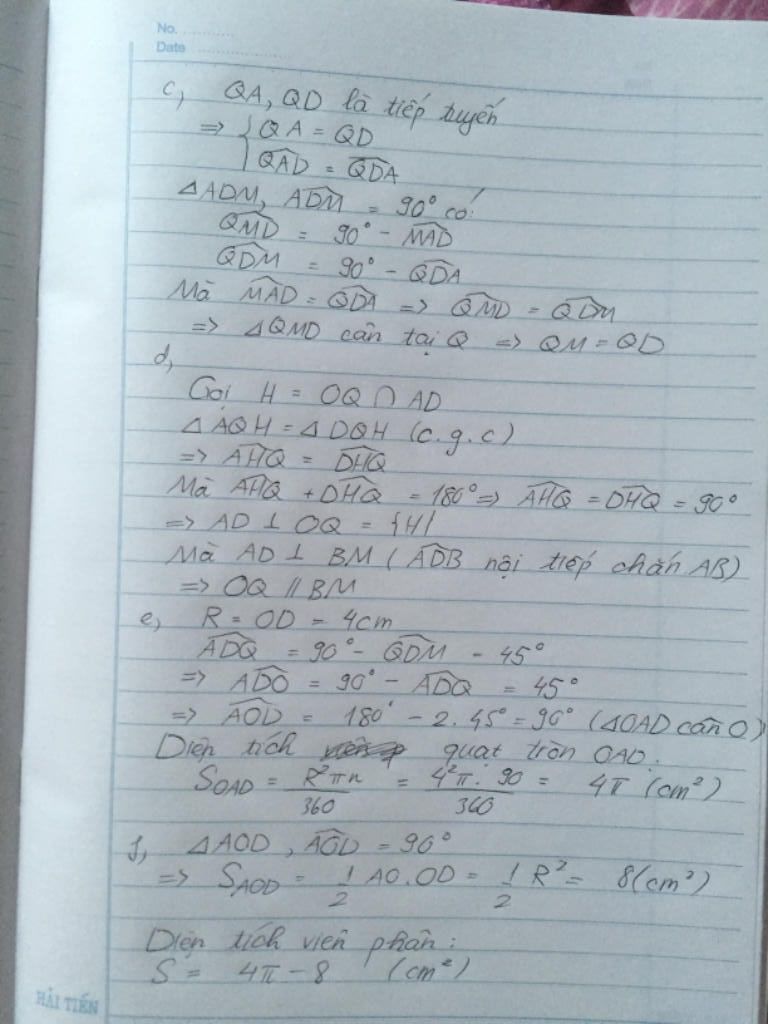 No. ............
Date ....................
c, QA, QD là tiếp tuyến
=> { QA = QD
QAD = QDA
△ADM, ADM = 90° có:
QMD = 90° - MAD
QDM = 90° - QDA
Mà MAD = QDA => QMD = QDM
=> △QMD cân tại Q => QM = QD
d,
Gọi H = OQ ∩ AD
△AQH = △DQH (c.g.c)
=> AHQ = DHQ
Mà AHQ + DHQ = 180° => AHQ = DHQ = 90°
=> AD ⊥ OQ = {H}
Mà AD ⊥ BM ( ADB nội tiếp chắn AB)
=> OQ // BM
e, R = OD = 4cm
ADQ = 90° - QDM - 45°
=> ADO = 90° - ADQ = 45°
=> AOD = 180° - 2.45° = 90° (△OAD cân O)
Diện tích quạt tròn OAD.
S_OAD = R²πn/360 = 4²π.90/360 = 4π (cm²)
f, △AOD, AOD = 90°
=> S_AOD = 1/2 AO.OD = 1/2 R² = 8(cm²)
Diện tích viên phân:
S = 4π - 8 (cm²)
HẢI TIẾN